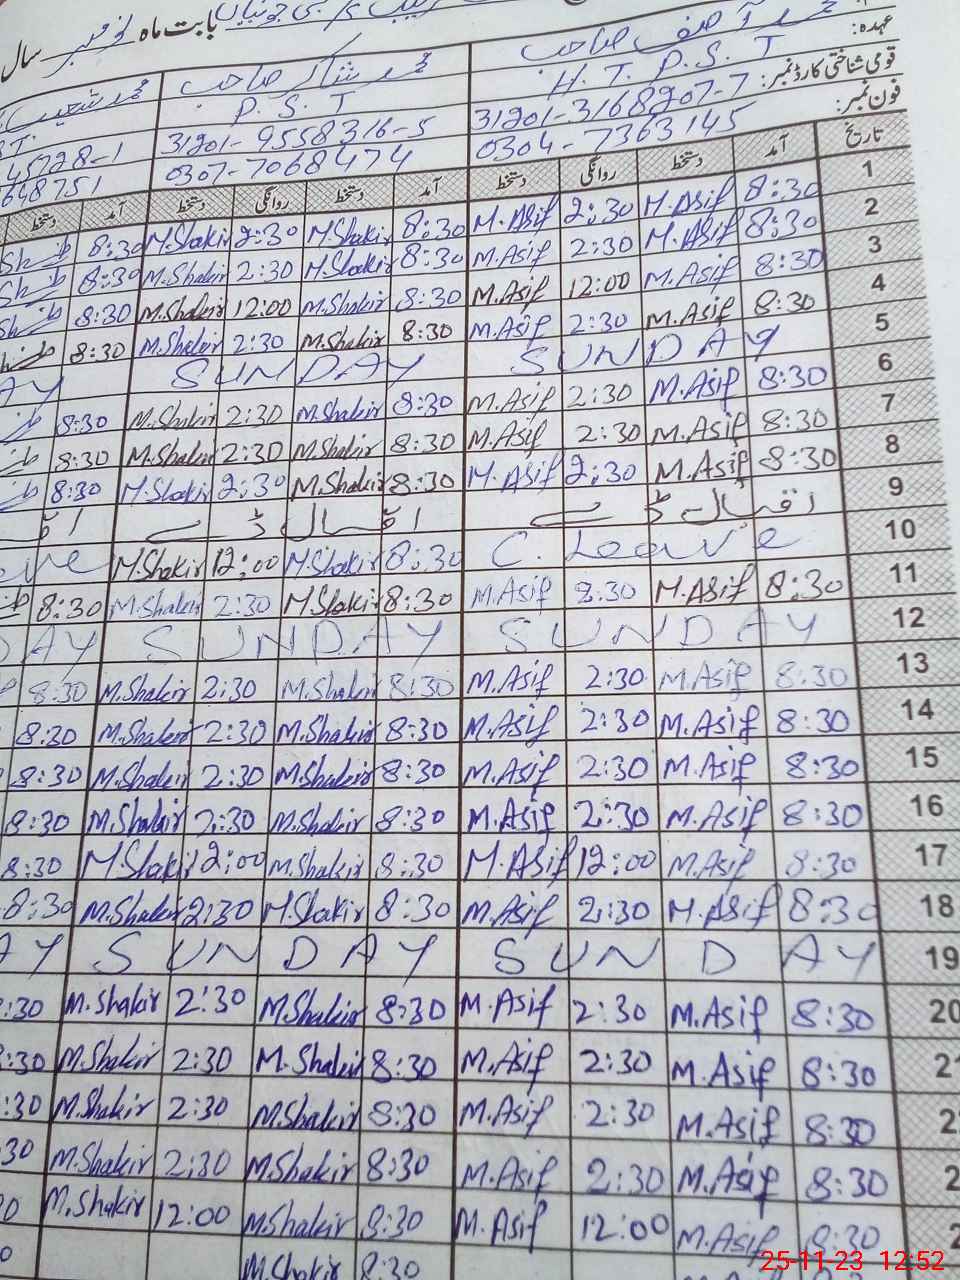 بابت ماہ نومبر سال
عہدہ:
محمد آصف صاحب محمد شاکر صاحب محمد شعیب
H. T. P. S. T P. S. T
قومی شناختی کارڈ نمبر: 31201-3168207-7 31201-9558316-5 45728-1
فون نمبر: 0304-7363145 0307-7068474 648751
تاریخ آمد دستخط روانگی دستخط آمد دستخط روانگی دستخط آمد دستخط
1 8:30 M.Asif 2:30 M.Asif 8:30 M.Shakir 2:30 M.Shakir 8:30
2 8:30 M.Asif 2:30 M.Asif 8:30 M.Shakir 2:30 M.Shakir 8:30
3 8:30 M.Asif 12:00 M.Asif 8:30 M.Shakir 12:00 M.Shakir 8:30
4 8:30 M.Asif 2:30 M.Asif 8:30 M.Shakir 2:30 M.Shakir 8:30
5 SUNDAY SUNDAY AY
6 8:30 M.Asif 2:30 M.Asif 8:30 M.Shakir 2:30 M.Shakir 8:30
7 8:30 M.Asif 2:30 M.Asif 8:30 M.Shakir 2:30 M.Shakir 8:30
8 8:30 M.Asif 2:30 M.Asif 8:30 M.Shakir 2:30 M.Shakir 8:30
9 اقبال ڈے اقبال ڈے
10 C. Leave 8:30 M.Shakir 12:00 M.Shakir
11 8:30 M.Asif 2:30 M.Asif 8:30 M.Shakir 2:30 M.Shakir 8:30
12 SUNDAY SUNDAY DAY
13 8:30 M.Asif 2:30 M.Asif 8:30 M.Shakir 2:30 M.Shakir 8:30
14 8:30 M.Asif 2:30 M.Asif 8:30 M.Shakir 2:30 M.Shakir 8:30
15 8:30 M.Asif 2:30 M.Asif 8:30 M.Shakir 2:30 M.Shakir 8:30
16 8:30 M.Asif 2:30 M.Asif 8:30 M.Shakir 2:30 M.Shakir 8:30
17 8:30 M.Asif 12:00 M.Asif 8:30 M.Shakir 12:00 M.Shakir 8:30
18 8:30 M.Asif 2:30 M.Asif 8:30 M.Shakir 2:30 M.Shakir 8:30
19 SUNDAY SUNDAY AY
20 8:30 M.Asif 2:30 M.Asif 8:30 M.Shakir 2:30 M.Shakir :30
2 8:30 M.Asif 2:30 M.Asif 8:30 M.Shakir 2:30 M.Shakir :30
2 8:30 M.Asif 2:30 M.Asif 8:30 M.Shakir 2:30 M.Shakir :30
2 8:30 M.Asif 2:30 M.Asif 8:30 M.Shakir 2:30 M.Shakir 30
2 8:30 M.Asif 12:00 M.Asif 8:30 M.Shakir 12:00 M.Shakir 0
M.Asif 8:30 M.Shakir 0
25-11-23 12:52